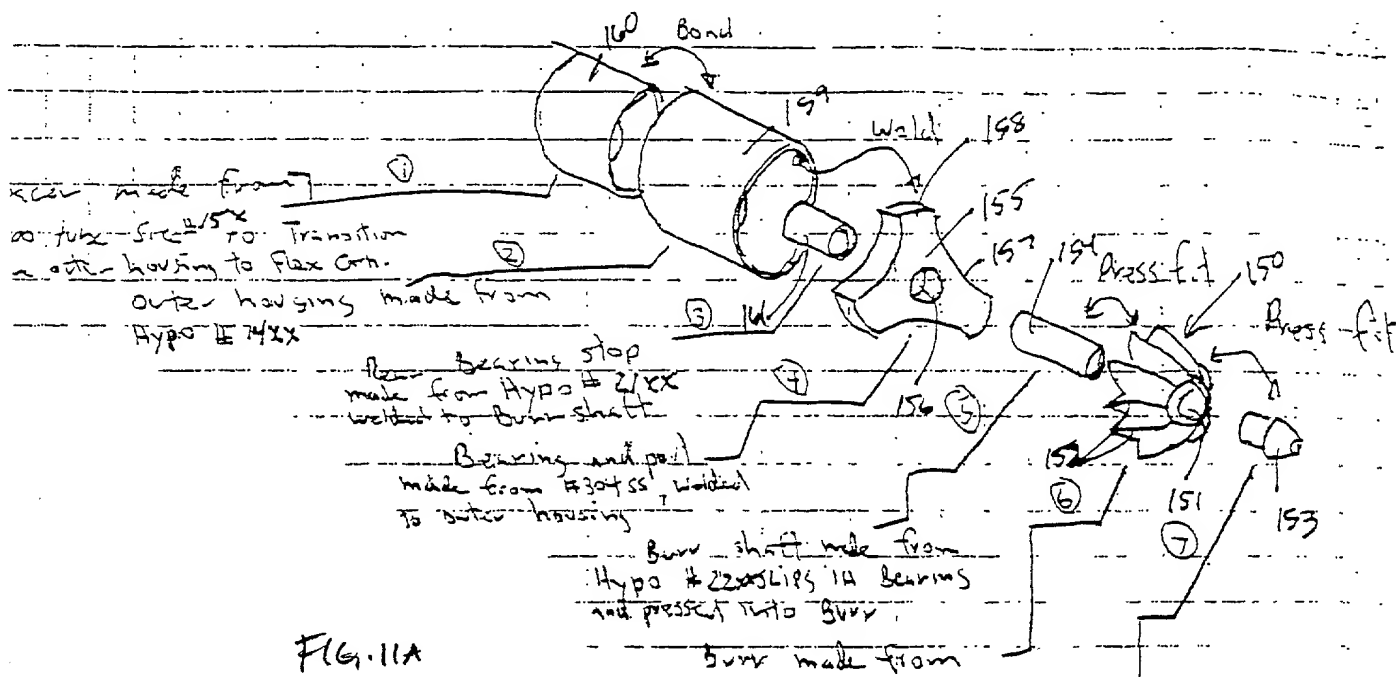 160
Bond
159
Weld
158
155
157
154
Press fit
150
Press-fit
①
made from
tube size to Transition
outer housing to Flex
②
outer housing made from
Hypo #
③
161
Rear Bearing stop
made from Hypo # 21XX
welded to Burr shaft
④
156
⑤
Bearing
made from #304 SS, welded
to outer housing
152
⑥
151
⑦
153
Burr shaft made from
Hypo # 22XX slips in Bearing
and pressed into Burr
Burr made from
FIG.11A